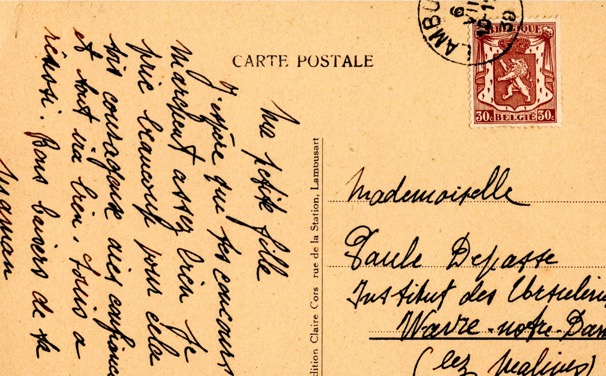 CARTE POSTALE
LAMBU
6
VII
10-1
39
BELGIQUE
30c 30c
BELGIË
Ma petite fille
J'espère que tes concours
marchent assez bien je
prie beaucoup pour cela
sois courageuse aies confiance
et tout ira bien. Louis a
réussi. Bons baisers de ta
Maman
dition Claire Cors rue de la Station, Lambusart
Mademoiselle
Paule Depasse
Institut des Ursulin
Wavre-notre-Dam
(lez Malines)